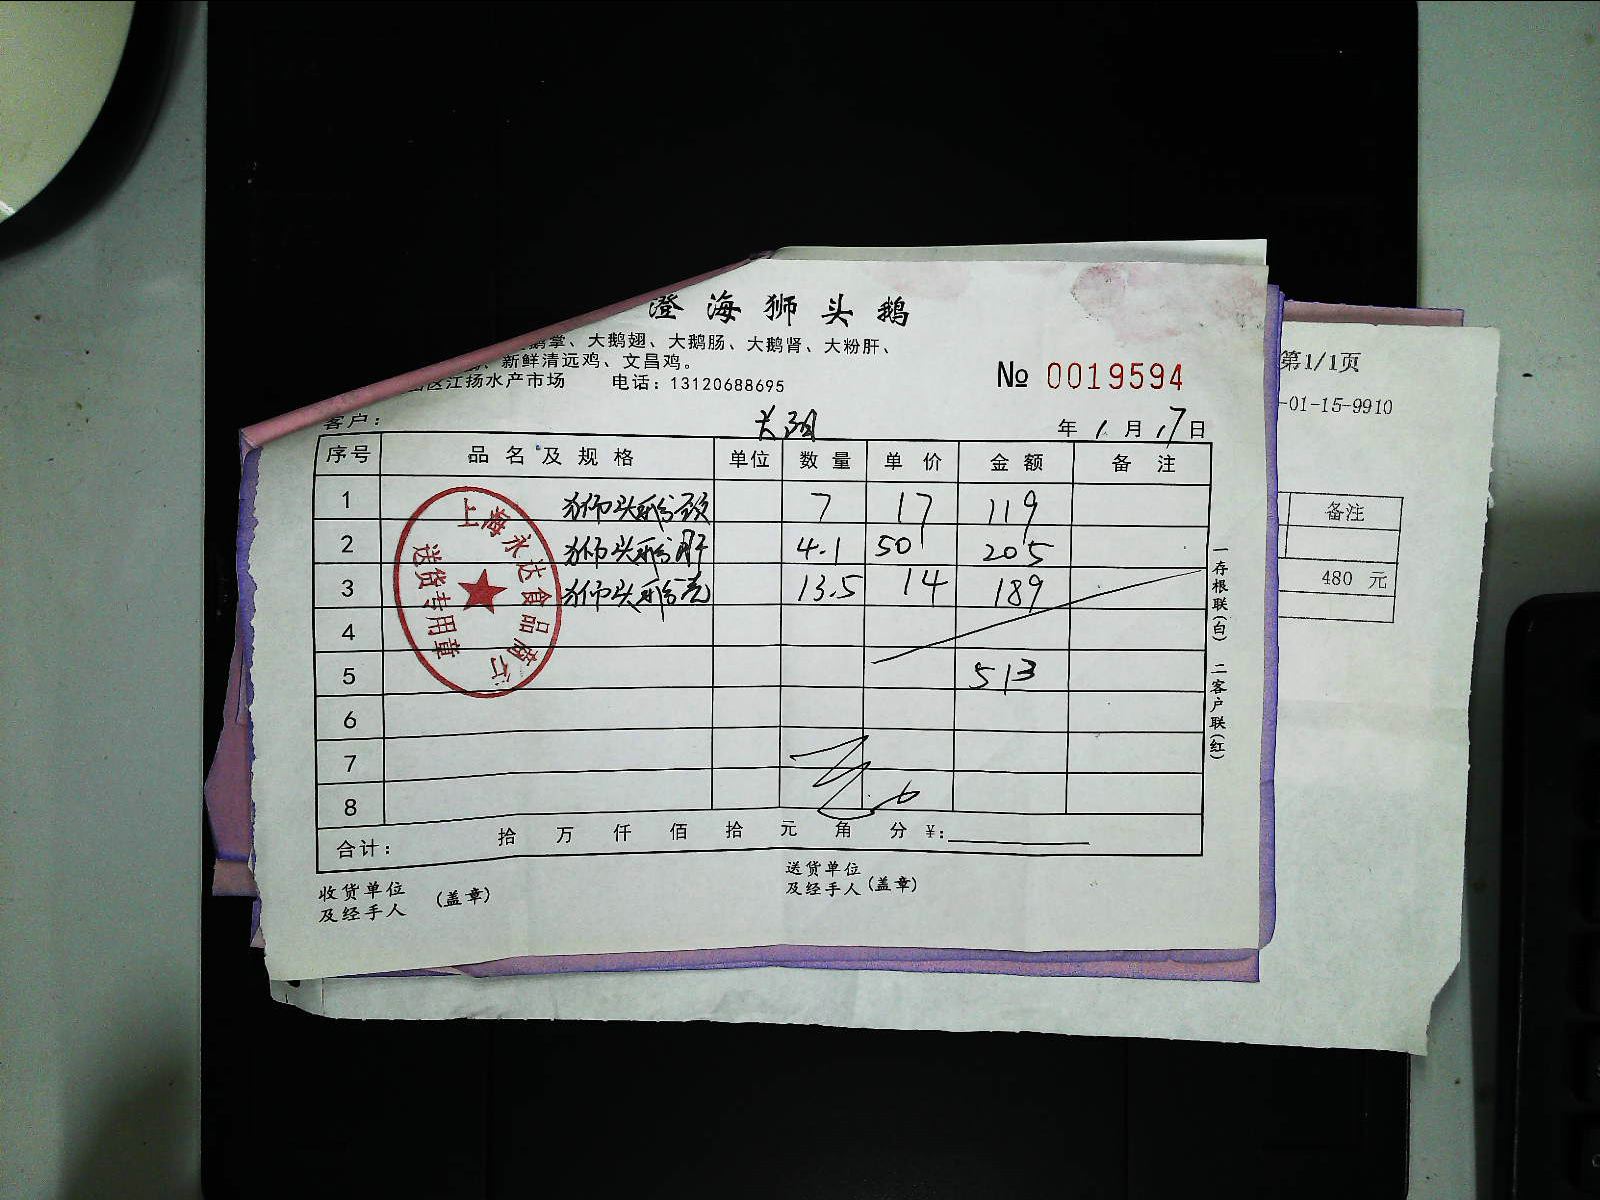 澄海狮头鹅
鹅掌、大鹅翅、大鹅肠、大鹅肾、大粉肝、
新鲜清远鸡、文昌鸡。
区江扬水产市场 电话：13120688695
№ 0019594
第1/1页
-01-15-9910
客户： 年 1 月 17 日
序号 品名及规格 单位 数量 单价 金额 备注
1 狮头 7 17 119
2 狮头 肝 4.1 50 205
3 狮头 13.5 14 189
4
5 513
6
7
8
合计： 拾 万 仟 佰 拾 元 角 分 ¥:
收货单位
及经手人 (盖章)
送货单位
及经手人 (盖章)
一存根联(白) 二客户联(红)
上海永达食品商行
送货专用章
备注
480 元